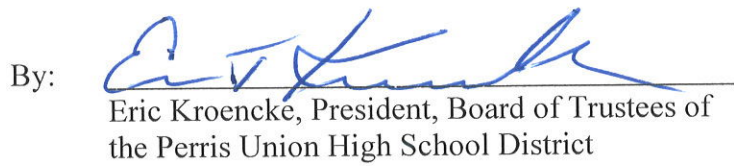 By:
Eric Kroencke, President, Board of Trustees of
the Perris Union High School District